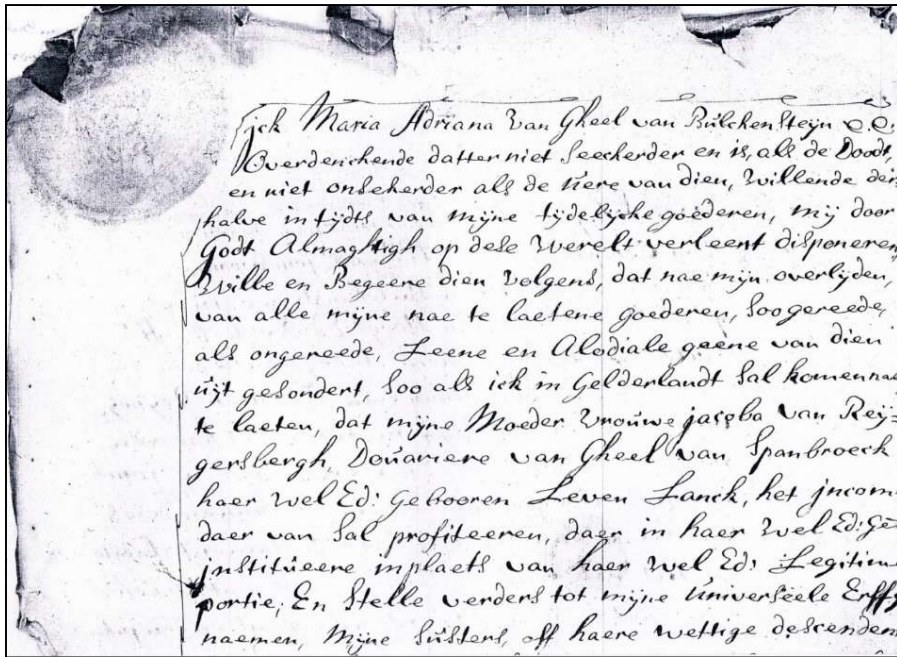 jck Maria Adriana van Gheel van Bülckensteyn e.c.
Overdenckende datter niet seeckerder en is, als de Doodt,
en niet onsekerder als de üere van dien, willende der
halve in tijdts van mijne tijdelijcke goederen, mij door
Godt Almaghtigh op dese werelt verleent disponeren,
Wille en Begeere dien volgens, dat nae mijn overlijden,
van alle mijne nae te laetene goederen, soo gereede,
als ongereede, Leene en Alodiale geene van dien
üijt gesondert, soo als ick in Gelderlandt sal komen nae
te laeten, dat mijne Moeder vroüwe jacoba van Reij=
gersbergh, Doüariere van Gheel van Spanbroeck
haer wel Ed: gebooren Leven Lanck, het jncom
daer van sal profiteeren, daer in haer wel Ed: Ge
jnstitüeere in plaets van haer wel Ed: Legitim
portie, En stelle verders tot mijne üniverseele Erff
naemen, Mijne süsters, off haere wettige descenden